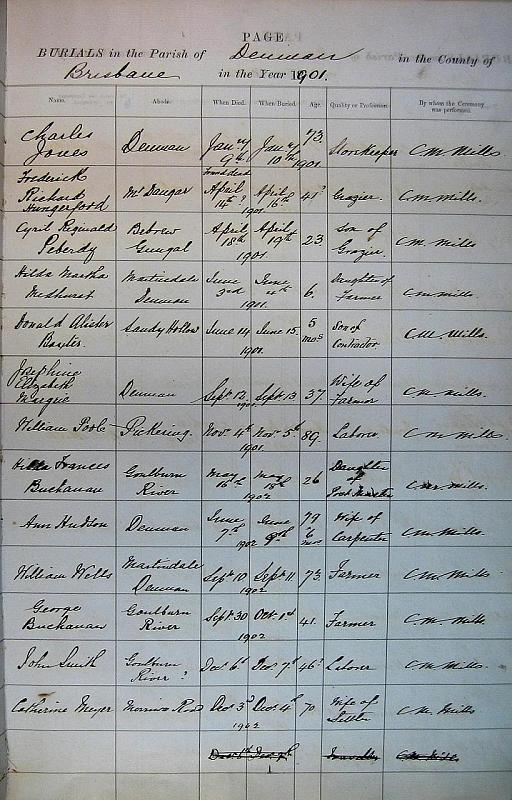 PAGE
BURIALS in the Parish of Denman in the County of
Brisbane in the Year 1901.
Name. Abode. When Died. When Buried. Age. Quality or Profession. By whom the Ceremony
was performed.
Charles Jany Jany 73
Jones Denman 9th 10th 1901 Storekeeper C.M. Mills
Frederick Found dead
Richard Mt Dangar April April 41? Grazier. C.M. Mills.
Hungerford 14th? 16th
1901
Cyril Reginald April April Son of
Peberdy Gungal 18th 19th 23 Grazier. C.M. Mills
1901.
Hilda Martha Martindale June June Daughter of
Medhurst Denman 2nd 4th 6. Farmer C.M. Mills.
1901.
Donald Alister Sandy Hollow June 14 June 15 5 Son of C.M. Mills.
Baxter. 1901. mos Contractor
Josephine
Elizabeth Wife of
Denman Sept 12 Sept 13 37 Farmer C.M. Mills.
1901
William Poole Pickering. Novr 4th Novr 5th 89. Laborer C.M. Mills.
1901
Frances Goulburn May May Daughter
Buchanan River 16th 18th 26 of C.M. Mills.
1902
Ann Hudson Denman June June 79 Wife of
7th 9th 6 Carpenter C.M. Mills.
1902 mos
William Wells Martindale Sept 10 Sept 11. 73. Farmer C.M. Mills
Denman 1902
George Goulburn Sept 30 Oct
Buchanan River 41. Farmer C.M. Mills
1902
John Smith Goulburn Decr 6th Decr 7th 46? Laborer C.M. Mills.
River?
Catherine Meyer Road Decr 3rd Decr 4th 70 Wife of C.M. Mills
1902 Settler
C.M. Mills.